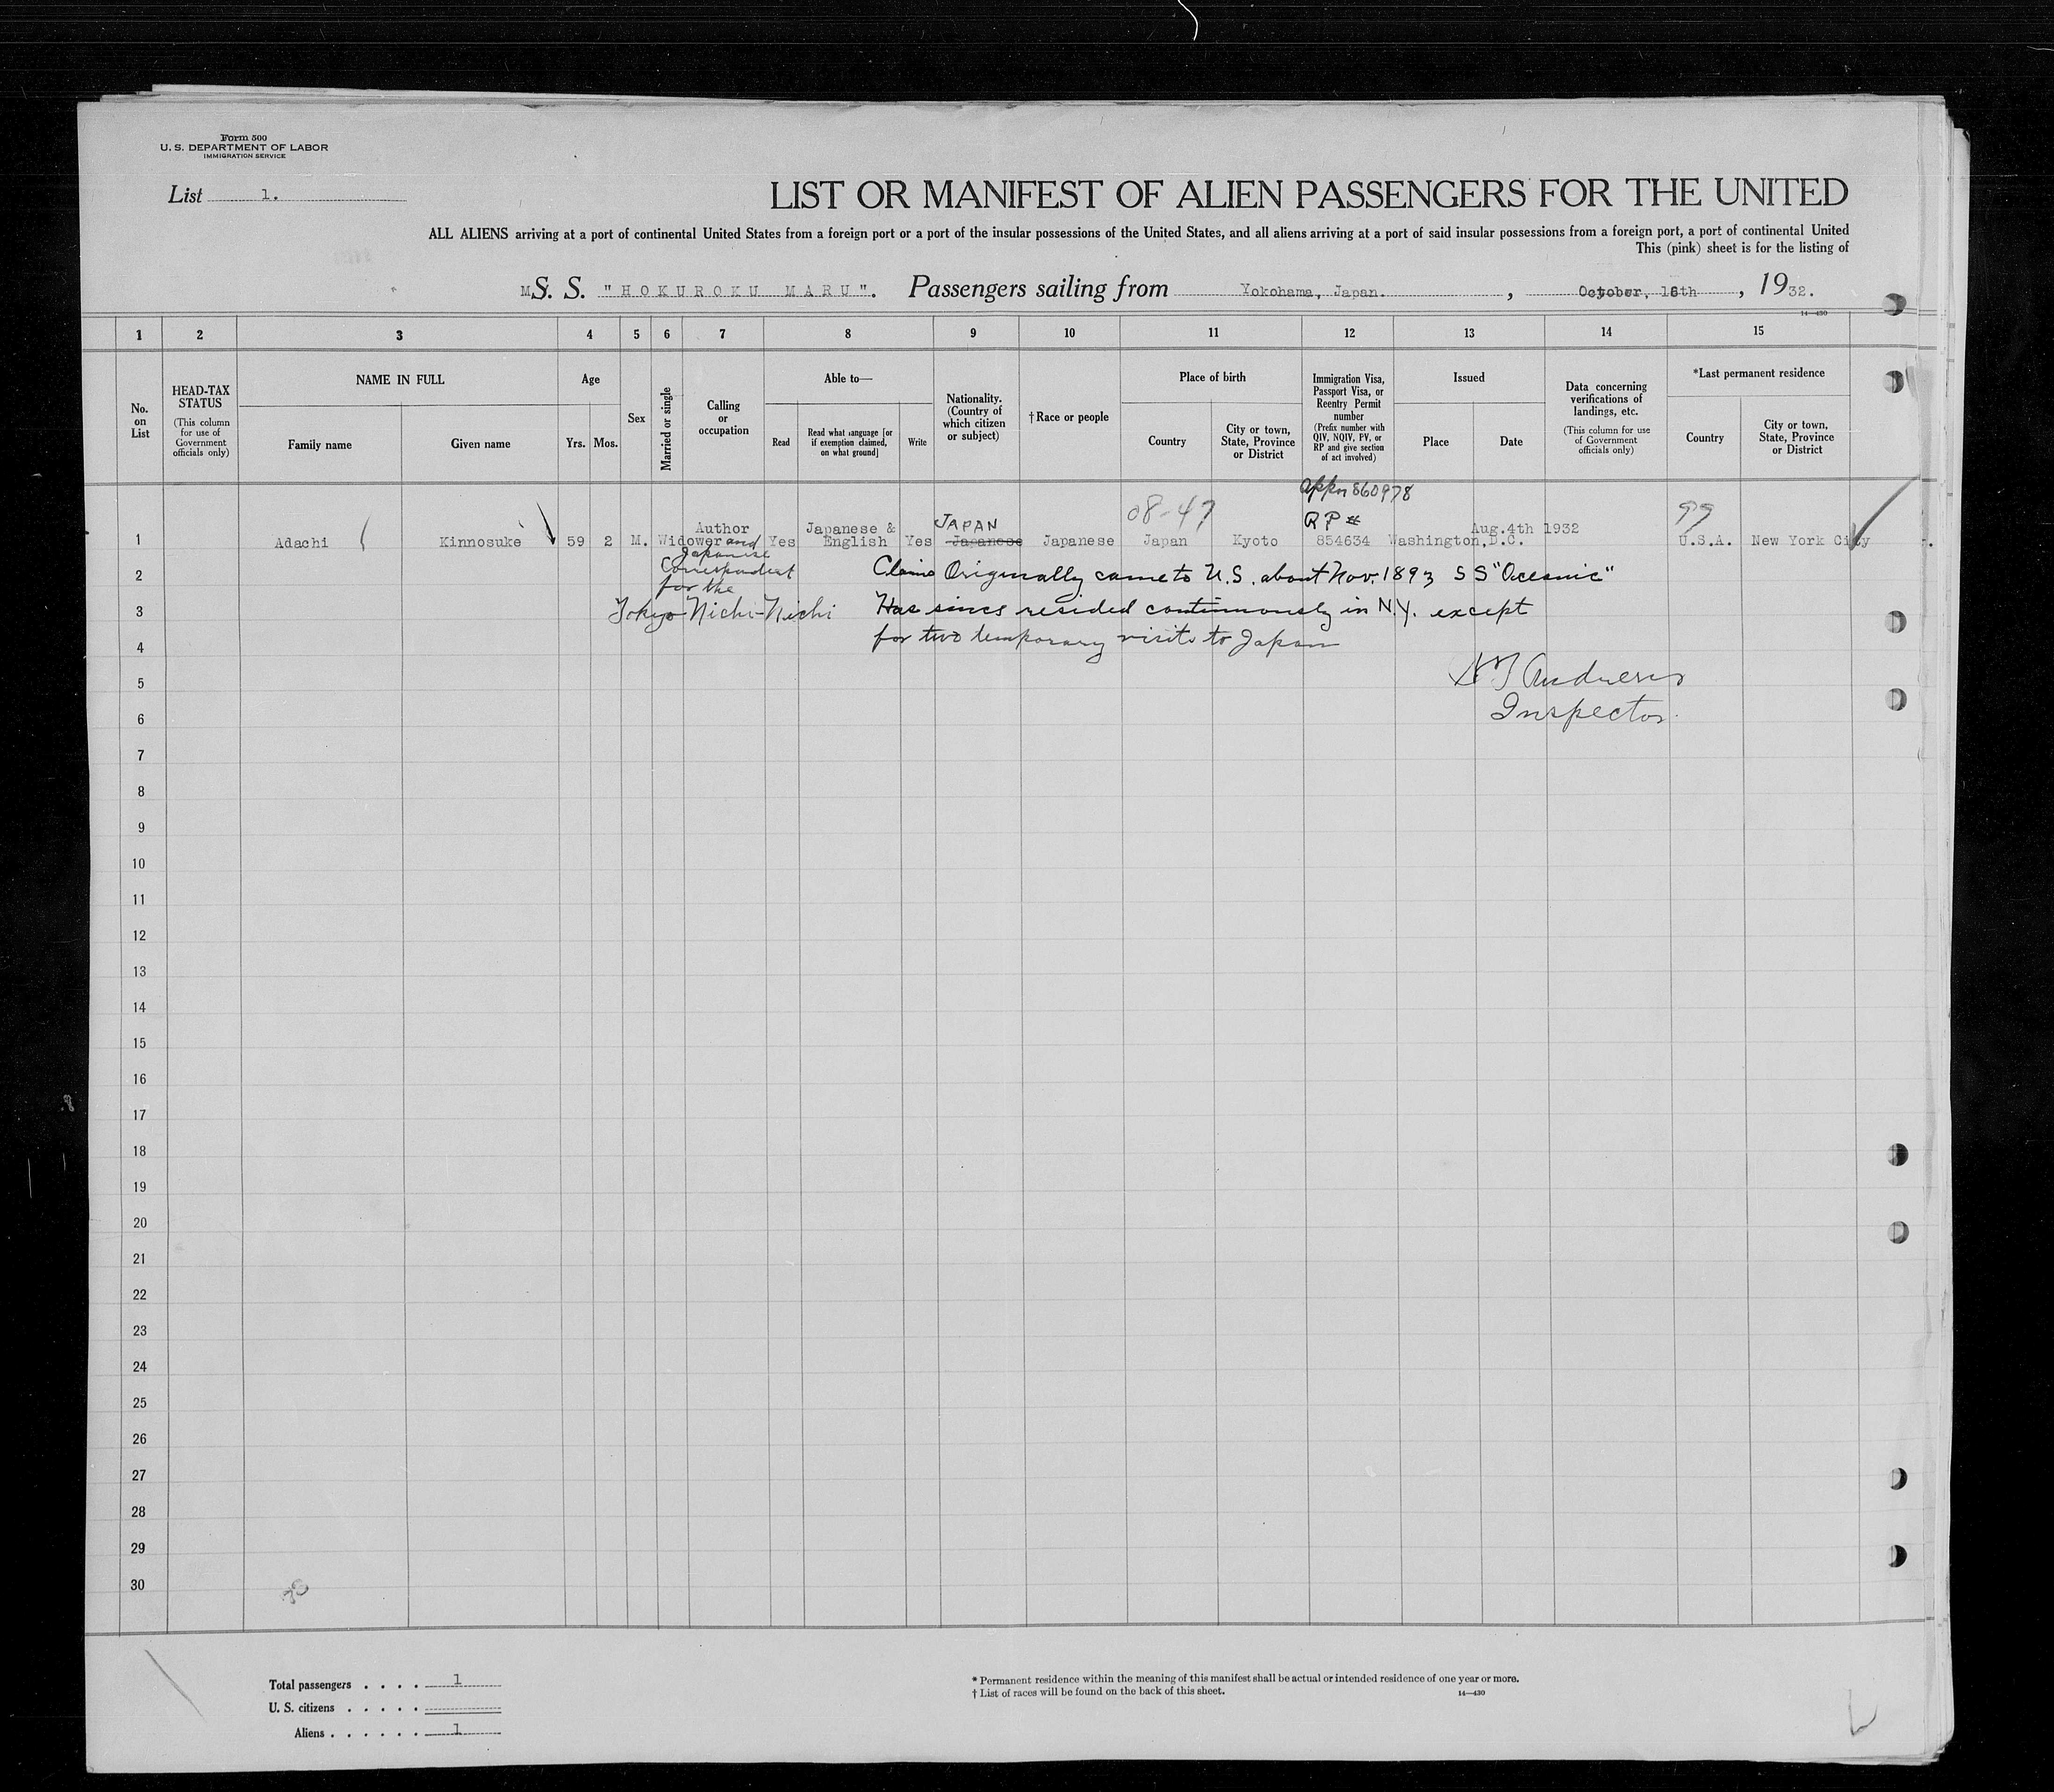 Form 500
U. S. DEPARTMENT OF LABOR
IMMIGRATION SERVICE
List 1.
LIST OR MANIFEST OF ALIEN PASSENGERS FOR THE UNITED
ALL ALIENS arriving at a port of continental United States from a foreign port or a port of the insular possessions of the United States, and all aliens arriving at a port of said insular possessions from a foreign port, a port of continental United
This (pink) sheet is for the listing of
S. S. "HOKUROKU MARU". Passengers sailing from Yokohama, Japan. , October, 18th , 1932.
14—430
1 2 3 4 5 6 7 8 9 10 11 12 13 14 15
No. on List
HEAD-TAX STATUS
(This column for use of Government officials only)
NAME IN FULL
Family name
Given name
Age
Yrs.
Mos.
Sex
Married or single
Calling or occupation
Able to—
Read
Read what language [or if exemption claimed, on what ground]
Write
Nationality. (Country of which citizen or subject)
†Race or people
Place of birth
Country
City or town, State, Province or District
Immigration Visa, Passport Visa, or Reentry Permit number
(Prefix number with QIV, NQIV, PV, or RP and give section of act involved)
Issued
Place
Date
Data concerning verifications of landings, etc.
(This column for use of Government officials only)
*Last permanent residence
Country
City or town, State, Province or District
860978
08-47
RP #
99
JAPAN
Author
Japanese &
Aug.4th 1932
1 Adachi Kinnosuke 59 2 M. Widower and Yes English Yes Japanese Japanese Japan Kyoto 854634 Washington,D.C. U.S.A. New York City
Japanese
2 Correspondent Claims Originally came to U.S. about Nov. 1893 SS "Oceanic"
for the
3 Tokyo Nichi-Nichi Has since resided continuously in N.Y. except
4 for two temporary visits to Japan
5 Andrews
6 Inspector.
7
8
9
10
11
12
13
14
15
16
17
18
19
20
21
22
23
24
25
26
27
28
29
30
Total passengers . . . . 1
U. S. citizens . . . . .
Aliens . . . . . . 1
* Permanent residence within the meaning of this manifest shall be actual or intended residence of one year or more.
† List of races will be found on the back of this sheet.
14—430